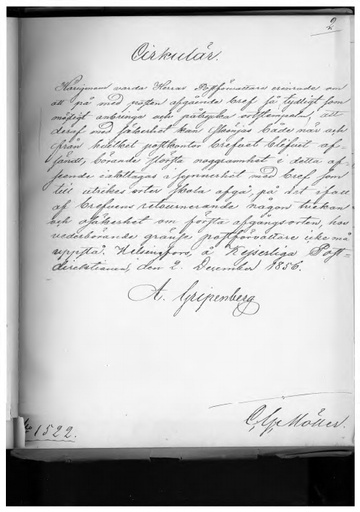 2
Cirkulär.
Härigenom varda Herrar Postförvaltare erinrade om
att på med posten afgående bref så tydligt som
möjligt anbringa och påtrycka ortstempeln, att
deraf med säkerhet kan skönjas både när och
från hvilket postkontor brefvet blifvit af-
sändt, börande största noggrannhet i detta af-
seende iakttagas i synnerhet med bref som
till utrikes orter skola afgå, på det ifall
af brefvens retournerande någon tvekan
och osäkerhet om första afgångsorten, hos
vederbörande gräns postförvaltare icke må
uppstå. Helsingfors, å Kejserliga Post-
direktionen, den 2. December 1856.
A. Gripenberg
1522.